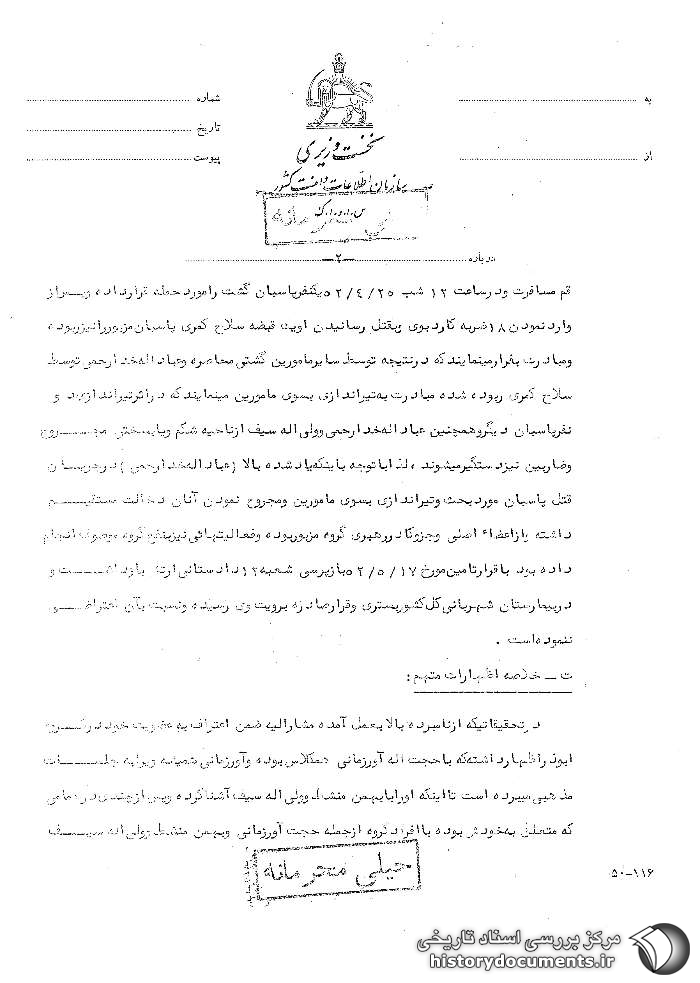 به
شماره
تاریخ
از
پیوست
نخست وزیری
سازمان اطلاعات و امنیت کشور
درباره
-۲-
قم مسافرت ودرساعت ۱۲ شب ۵۲/۴/۲۵ یکنفرپاسبان گشت رامورد حمله قرارداده وپس از
وارد نمودن ۱۸ ضربه کارد بوی وبقتل رسانیدن او یک قبضه سلاح کمری پاسبان مزبوررانیزربوده
ومبادرت بفرارمینمایند که درنتیجه توسط سایرمامورین گشتی محاصره وعباداله خدارحمی توسط
سلاح کمری ربوده شده مبادرت به تیراندازی بسوی مامورین مینمایند که دراثرتیراندازی دو
نفرپاسبان دیگروهمچنین عباداله خدارحمی وولی اله سیف ازناحیه شکم وپابسختی مجروح
وضاربین نیزدستگیرمیشوند ، لذاباتوجه باینکه یادشده بالا (عباداله خدارحمی ) درجریان
قتل پاسبان مورد بحث وتیراندازی بسوی مامورین ومجروح نمودن آنان دخالت مستقیم
داشته وازاعضاء اصلی وجزوکادررهبری گروه مزبوربوده وفعالیتهائی نیزبنفع گروه موصوف انجام
داده بود باقرارتامین مورخ ۵۲/۵/۱۷ بازپرسی شعبه ۱۲ دادستانی ارتش بازداشت و
دربیمارستان شهربانی کل کشوربستری وقرارصادره برویت وی رسیده ونسبت بآن اعتراضی
ننموده است .
ت - خلاصه اظهارات متهم :
درتحقیقاتیکه ازنامبرده بالابعمل آمده مشارالیه ضمن اعتراف به عضویت خود درگروه
ابوذراظهارداشته که باحجت اله آورزمانی همکلاس بوده وآورزمانی همیشه ویرابه جلسات
مذهبی میبرده است تااینکه اورابابهمن منشط وولی اله سیف آشناکرده وپس ازچندی درحمامی
که متعلق بخودش بوده باافرادگروه ازجمله حجت آورزمانی وبهمن منشط وولی اله سیف
خیلی محرمانه
۵۰-۱۱۶
مرکز بررسی اسناد تاریخی
historydocuments.ir